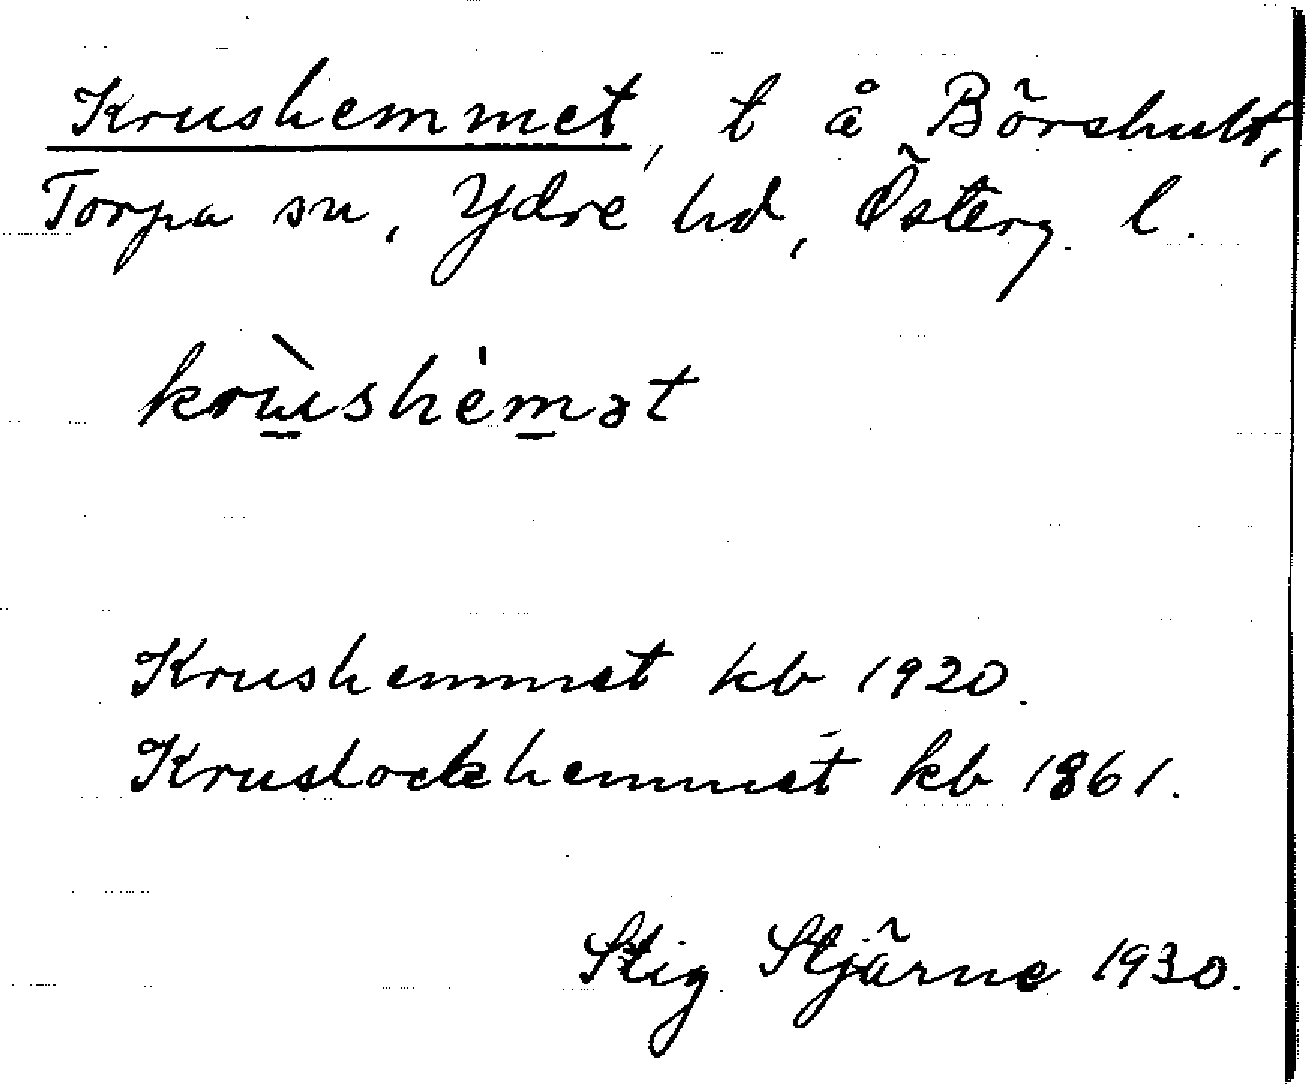 Krushemmet, t å Börshult,
Torpa sn, Ydre hd, Österg. l.
krùshèmət
Krushemmet kb 1920.
Kruslockhemmet kb 1861.
Stig Stjärne 1930.